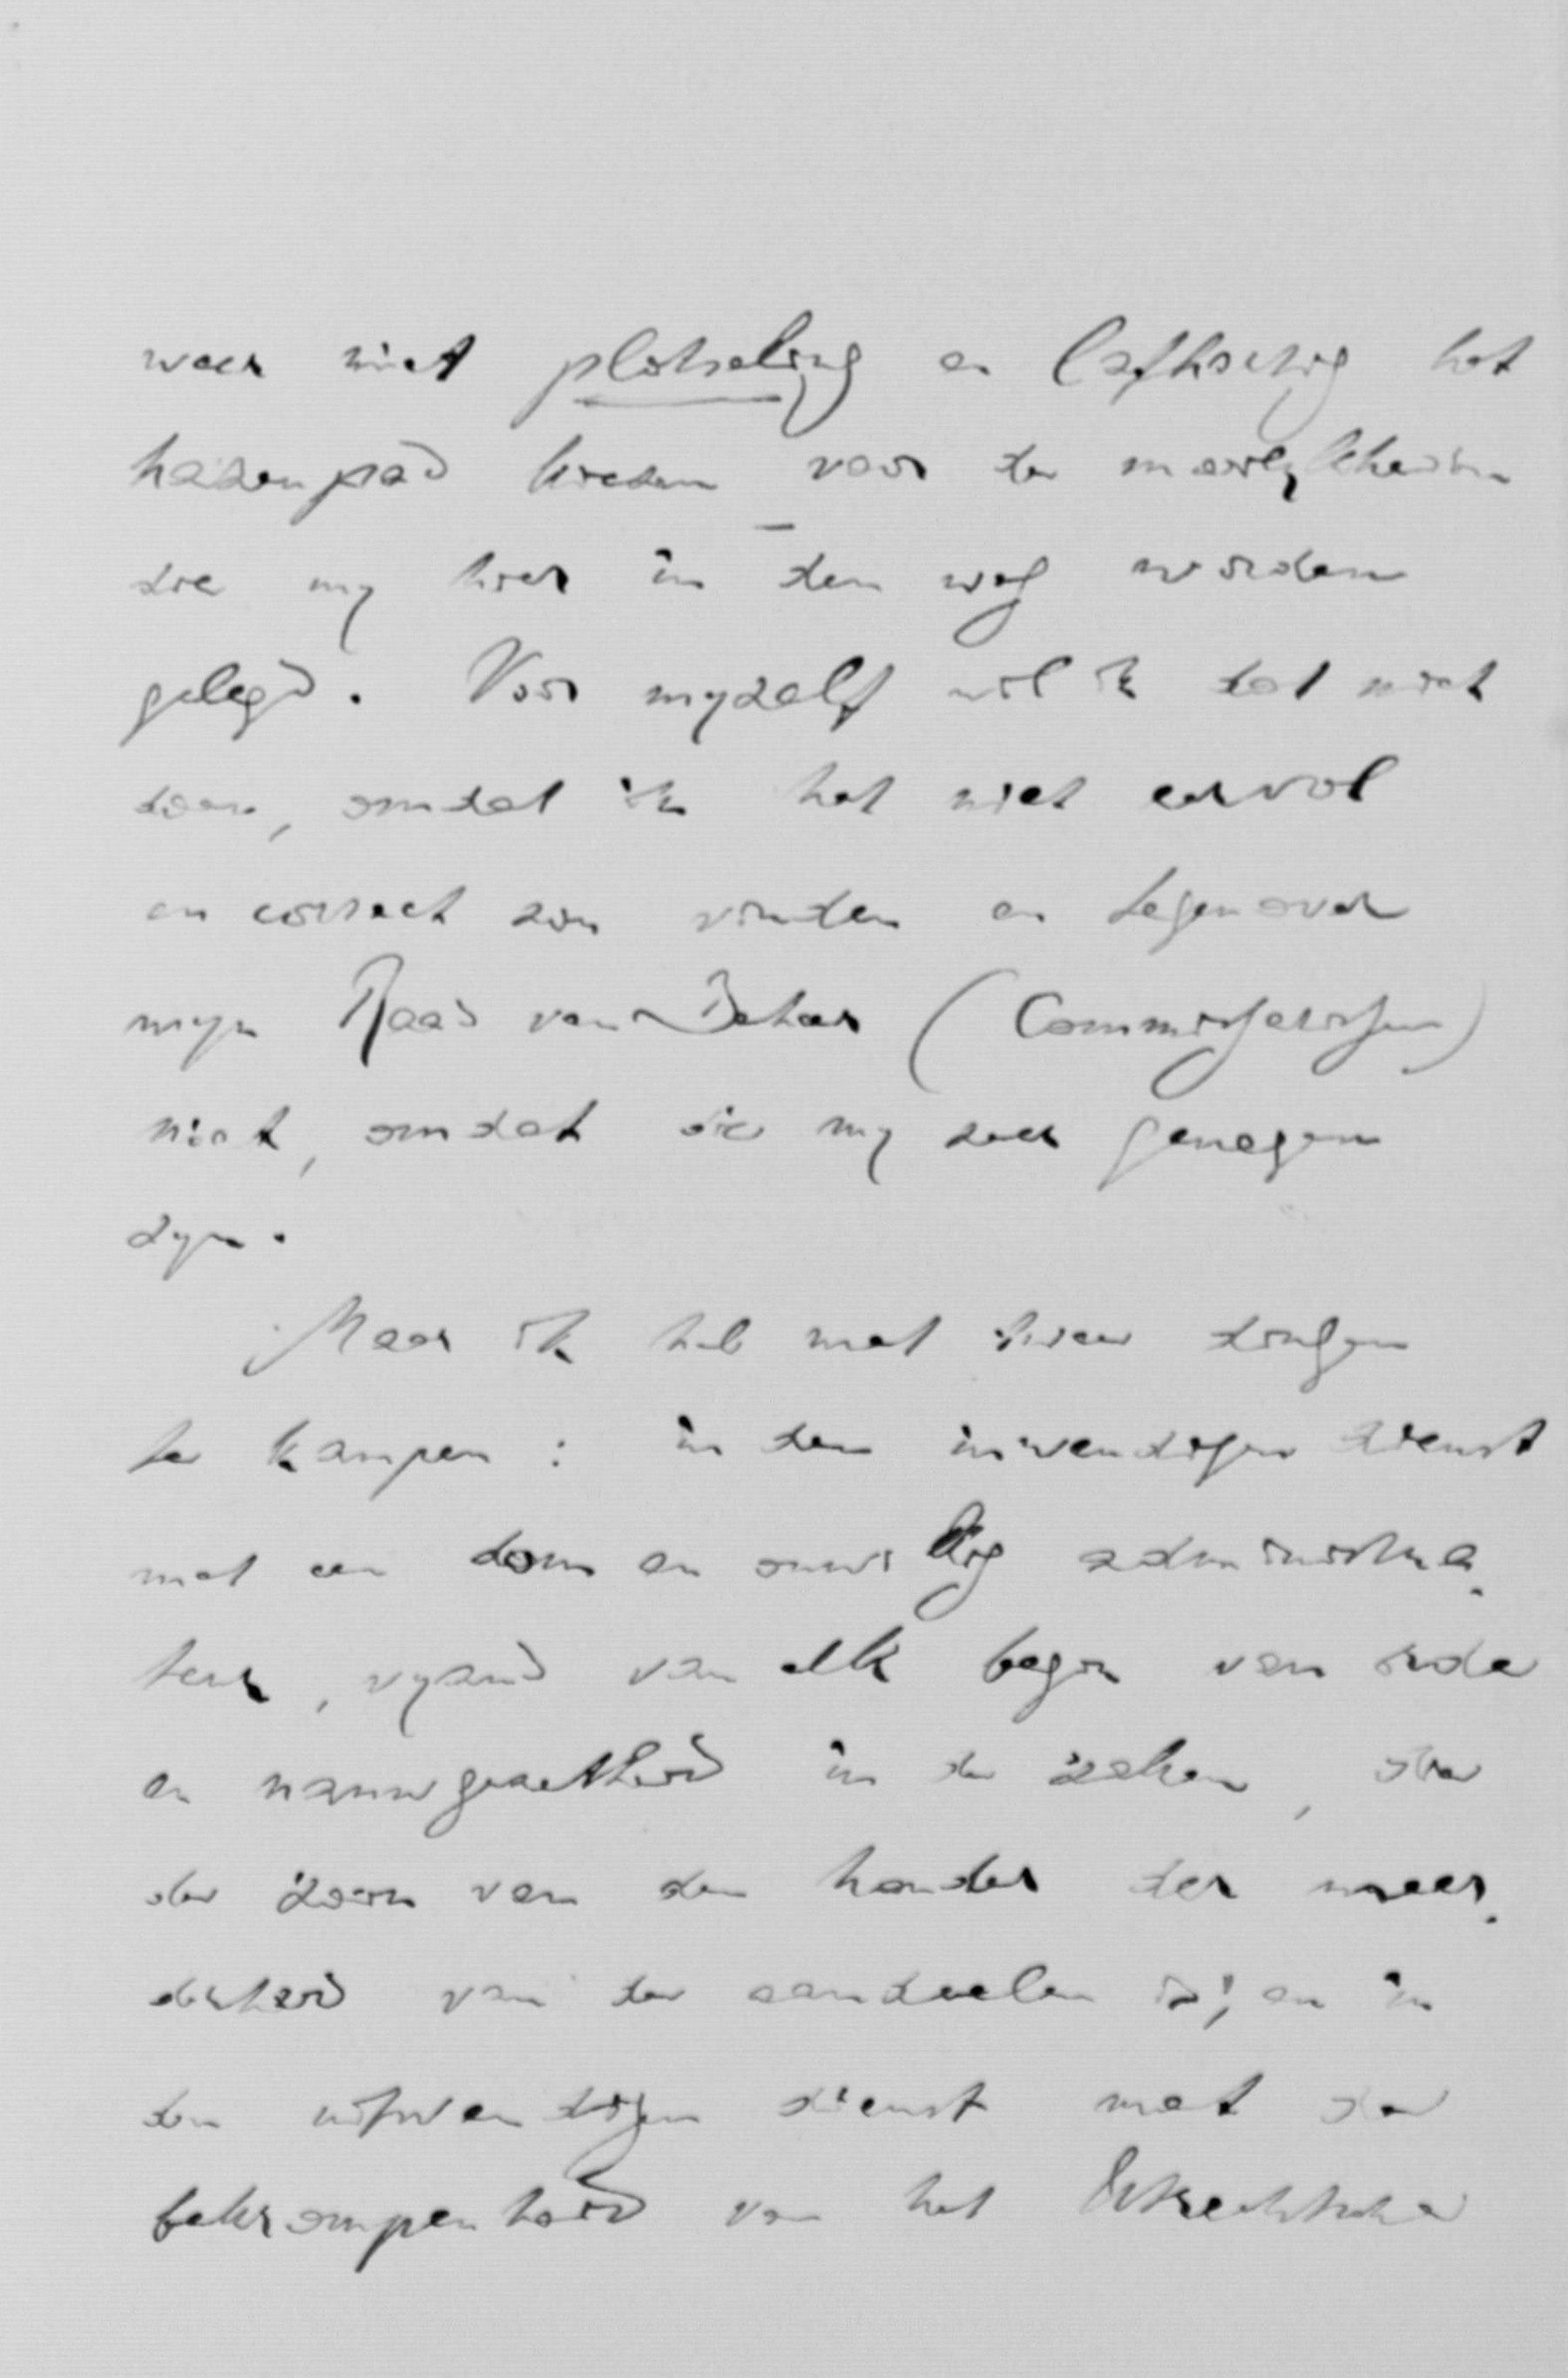 weer niet plotseling en lafhartig het
hazenpad kiezen voor de moeilykheden
die my hier in den weg worden
gelegd. Voor myzelf wil ik dat niet
doen, omdat ik het niet eervol
en correct zou vinden en tegenover
myn Raad van Beheer (Commissarissen)
niet, omdat die my zeer genegen
zyn.
Maar ik heb met twee dingen
te kampen: in den inwendigen dienst
met een dom en onwillig administra-
teur, vyand van elk begin van orde
en nauwgezetheid in de zaken, die
de zoon van den houder der meer-
derheid van de aandeelen is; en in
den uitwendigen dienst met de
bekrompenheid van het Utrechtsche